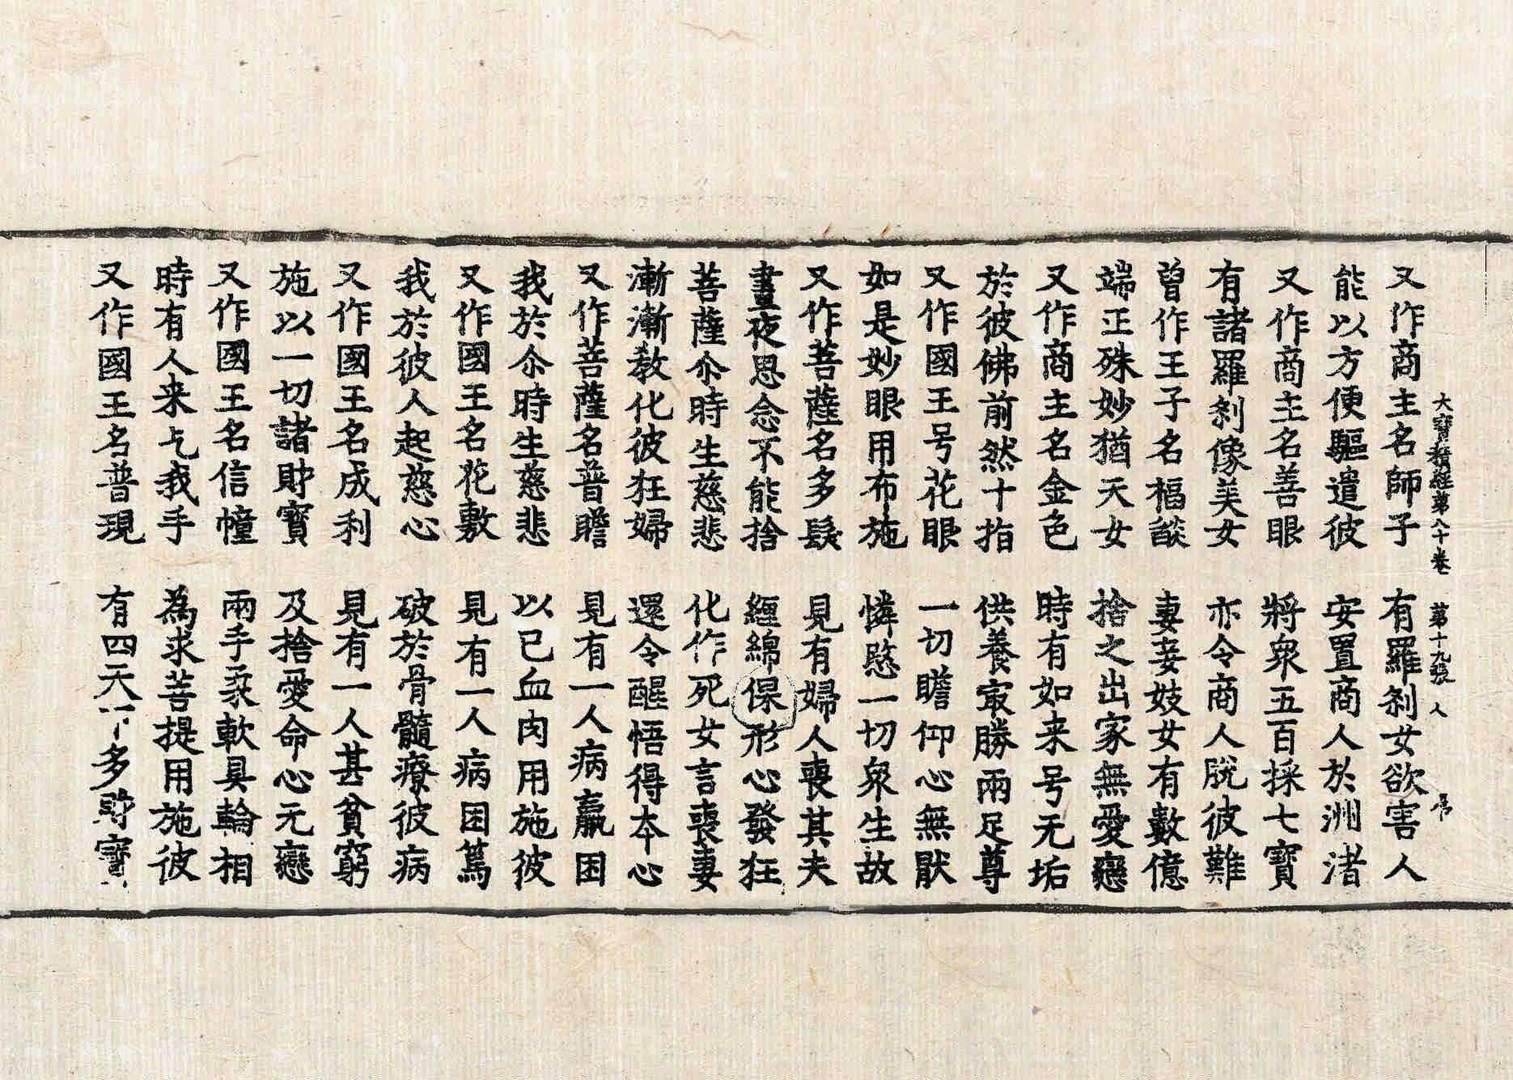 大寶積經第八十卷　第十九張　人　号
又作商主名師子　有羅刹女欲害人
能以方便驅遣彼　安置商人於洲渚
又作商主名善眼　將衆五百採七寶
有諸羅刹像美女　亦令商人脫彼難
曽作王子名福燄　妻妾妓女有數億
端正殊妙猶天女　捨之出家無愛戀
又作商主名金色　時有如来号无垢
於彼佛前然十指　供養㝡勝兩足尊
又作國王号花眼　一切瞻仰心無猒
如是妙眼用布施　憐愍一切衆生故
又作菩薩名多髮　見有婦人喪其夫
晝夜思念不能捨　纏綿倮形心發狂
菩薩尒時生慈悲　化作死女言喪妻
漸漸教化彼狂婦　還令醒悟得夲心
又作菩薩名普瞻　見有一人病羸困
我於尒時生慈悲　以已血肉用施彼
又作國王名花敷　見有一人病困篤
我於彼人起慈心　破於骨髓療彼病
又作國王名成利　見有一人甚貧窮
施以一切諸財寶　及捨愛命心无戀
又作國王名信幢　兩手柔軟具輪相
時有人来乞我手　為求菩提用施彼
又作國王名普現　有四天下多財寶